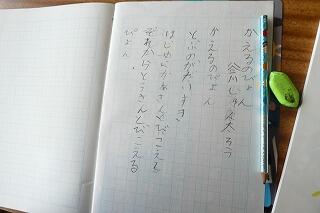 かえるのぴょん
谷川しゅん太ろう
かえるのぴょん
とぶのがだいすき
はじめにかあさんとびこえて
それからとうさんとびこえる
ぴょん